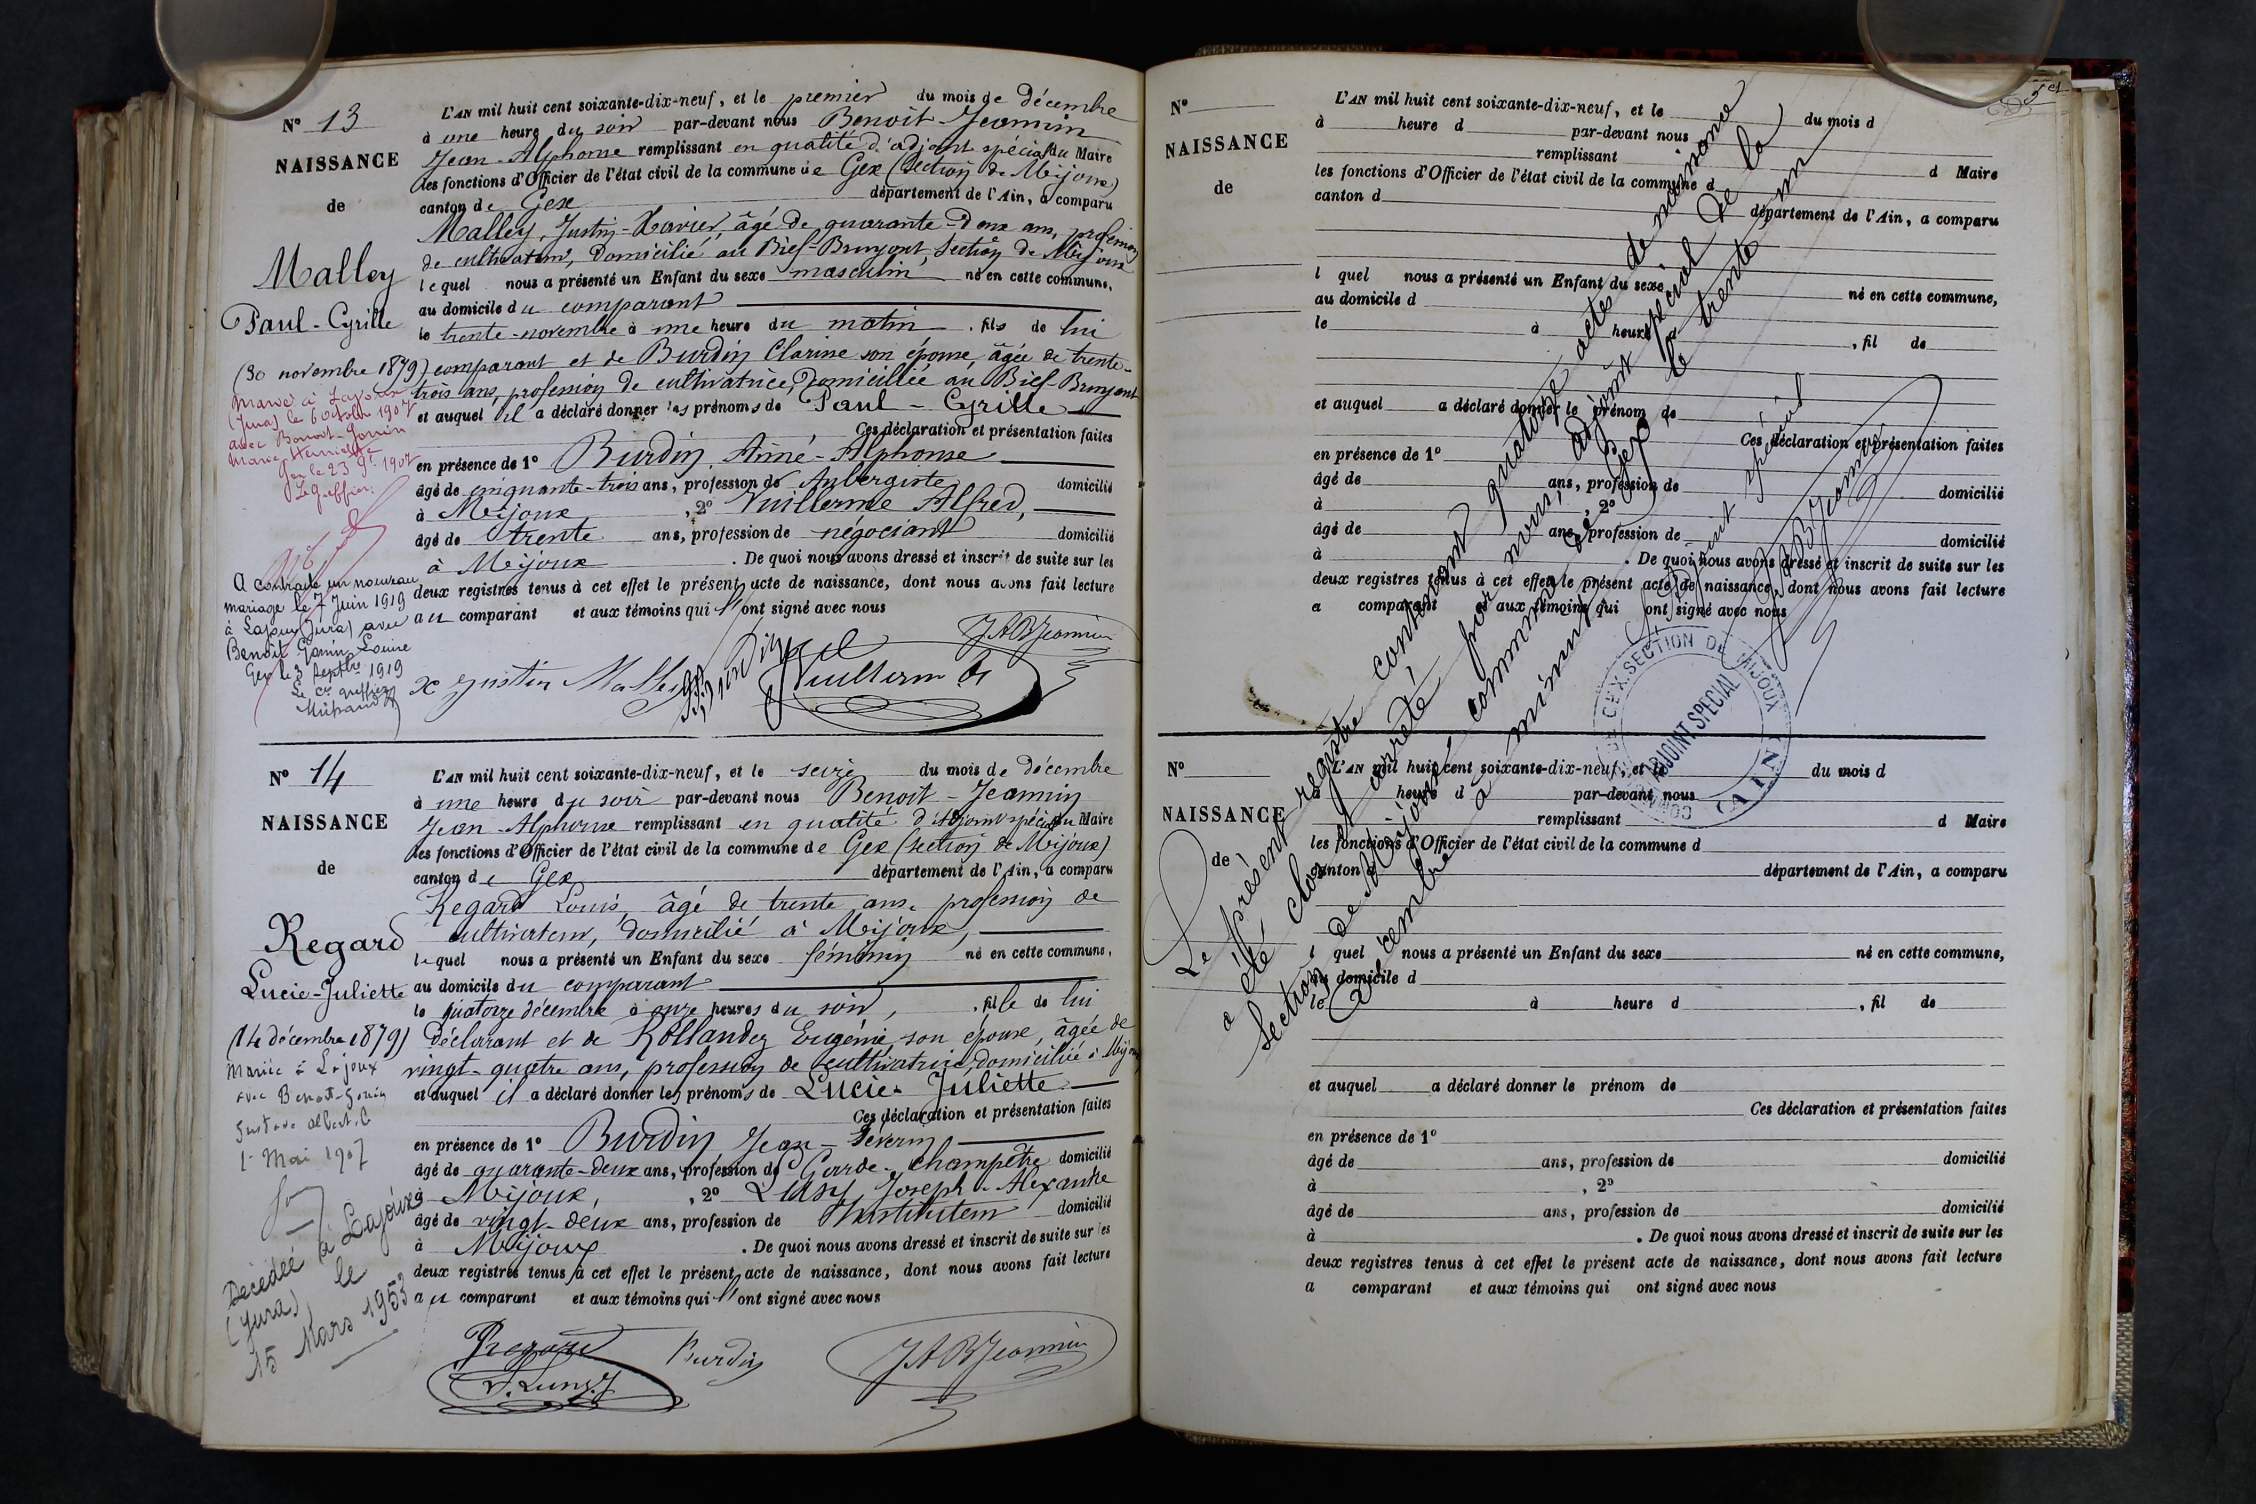 N° 13
NAISSANCE
de
Malley
Paul-Cyrille
(30 novembre 1879)
Marié à Lajoux
(Jura) le 6 octobre 1907
avec Benoit-Gonin
Marie
Gex le 23 9bre 1907
Le Greffier
A contracté un nouveau
mariage le 7 Juin 1919
à Lajoux (Jura) avec
Benoit Gonin Louise
Gex le 3 Septbre 1919
Le greffier
L'AN mil huit cent soixante-dix-neuf, et le premier du mois de décembre
à une heure du soir par-devant nous Benoit-Jeannin
Jean-Alphonse remplissant en qualité d'adjoint spécial du Maire
les fonctions d'Officier de l'état civil de la commune de Gex (Section de Mijoux)
canton de Gex département de l'Ain, a comparu
Malley, Justin-Xavier, âgé de quarante-deux ans, profession
de cultivateur, domicilié au Bief-Brunyont, Section de Mijoux
lequel nous a présenté un Enfant du sexe masculin né en cette commune,
au domicile du comparant
le trente-novembre à une heure du matin, fils de lui
comparant et de Burdin Clarine son épouse, âgée de trente-
trois ans, profession de cultivatrice, domiciliée au Bief-Brunyont
et auquel il a déclaré donner les prénoms de Paul-Cyrille
Ces déclaration et présentation faites
en présence de 1° Burdin, Aimé-Alphonse
âgé de cinquante-trois ans, profession de Aubergiste domicilié
à Mijoux, 2° Vuillerme Alfred,
âgé de trente ans, profession de négociant domicilié
à Mijoux. De quoi nous avons dressé et inscrit de suite sur les
deux registres tenus à cet effet le présent acte de naissance, dont nous avons fait lecture
au comparant et aux témoins qui l'ont signé avec nous
x Justin Malley Burdin Vuillerme JABJeannin
N° 14
NAISSANCE
de
Regard
Lucie-Juliette
(14 décembre 1879)
Mariée à Lajoux
avec Benoit-Gonin
Gustave Albert. C
1er Mai 1907
Décédée à Lajoux
(Jura) le
15 Mars 1953
L'AN mil huit cent soixante-dix-neuf, et le seize du mois de décembre
à une heure du soir par-devant nous Benoit-Jeannin
Jean-Alphonse remplissant en qualité d'Adjoint spécial du Maire
les fonctions d'Officier de l'état civil de la commune de Gex (section de Mijoux)
canton de Gex département de l'Ain, a comparu
Regard Louis, âgé de trente ans, profession de
cultivateur, domicilié à Mijoux,
lequel nous a présenté un Enfant du sexe féminin né en cette commune,
au domicile du comparant
le quatorze décembre à onze heures du soir, fille de lui
déclarant et de Rollandez Eugénie, son épouse, âgée de
vingt-quatre ans, profession de cultivatrice, domiciliée à Mijoux
et auquel il a déclaré donner les prénoms de Lucie-Juliette
Ces déclaration et présentation faites
en présence de 1° Burdin Jean-Séverin
âgé de quarante-deux ans, profession de Garde-champêtre domicilié
à Mijoux, 2° Joseph-Alexandre
âgé de vingt-deux ans, profession de Instituteur domicilié
à Mijoux. De quoi nous avons dressé et inscrit de suite sur les
deux registres tenus à cet effet le présent acte de naissance, dont nous avons fait lecture
au comparant et aux témoins qui l'ont signé avec nous
Regard Burdin JABJeannin
N°
NAISSANCE
de
L'AN mil huit cent soixante-dix-neuf, et le du mois d
à heure d par-devant nous
remplissant d Maire
les fonctions d'Officier de l'état civil de la commune d
canton d département de l'Ain, a comparu
l quel nous a présenté un Enfant du sexe né en cette commune,
au domicile d
le à heure , fil de
et auquel a déclaré donner le prénom de
Ces déclaration et présentation faites
en présence de 1°
âgé de ans, profession de domicilié
à , 2°
âgé de ans, profession de domicilié
à . De quoi nous avons dressé et inscrit de suite sur les
deux registres tenus à cet effet le présent acte de naissance, dont nous avons fait lecture
a comparant et aux témoins qui ont signé avec nous
Le présent registre contenant quatorze actes de naissance
a été clos et arrêté par nous, adjoint spécial de la
section de Mijoux, commune de Gex, le trente-un
décembre à minuit
L'adjoint spécial
JABJeannin
COMMUNE DE GEX. SECTION DE MIJOUX
ADJOINT SPÉCIAL
(AIN)
N°
NAISSANCE
de
L'AN mil huit cent soixante-dix-neuf, et le du mois d
à heure d par-devant nous
remplissant d Maire
les fonctions d'Officier de l'état civil de la commune d
canton d département de l'Ain, a comparu
l quel nous a présenté un Enfant du sexe né en cette commune,
au domicile d
le à heure d , fil de
et auquel a déclaré donner le prénom de
Ces déclaration et présentation faites
en présence de 1°
âgé de ans, profession de domicilié
à , 2°
âgé de ans, profession de domicilié
à . De quoi nous avons dressé et inscrit de suite sur les
deux registres tenus à cet effet le présent acte de naissance, dont nous avons fait lecture
a comparant et aux témoins qui ont signé avec nous